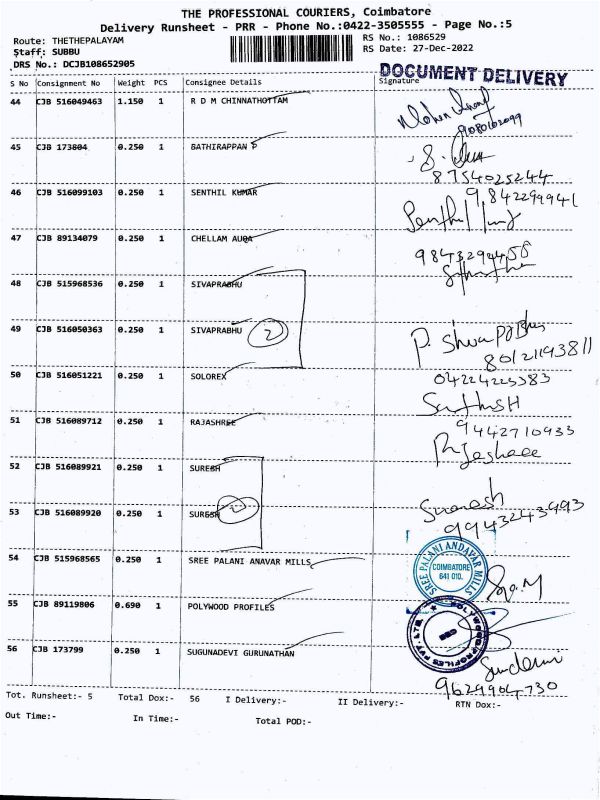 THE PROFESSIONAL COURIERS, Coimbatore
Delivery Runsheet - PRR - Phone No.:0422-3505555 - Page No.:5
Route: THETHEPALAYAM
RS No.: 1086529
Staff: SUBBU
RS Date: 27-Dec-2022
DRS No.: DCJB108652905
DOCUMENT DELIVERY
S No Consignment No Weight PCS Consignee Details Signature
44 CJB 516049463 1.150 1 R D M CHINNATHOTTAM
9080102099
45 CJB 173804 0.250 1 BATHIRAPPAN P
8754025244
46 CJB 516099103 0.250 1 SENTHIL KUMAR
9842299941
47 CJB 89134079 0.250 1 CHELLAM AUQA
9843294458
48 CJB 515968536 0.250 1 SIVAPRABHU
49 CJB 516050363 0.250 1 SIVAPRABHU 2
80121193811
50 CJB 516051221 0.250 1 SOLOREX
04224225383
51 CJB 516089712 0.250 1 RAJASHREE
9442710933
52 CJB 516089921 0.250 1 SURESH
53 CJB 516089920 0.250 1 SURESH
Suresh
9943243993
54 CJB 515968565 0.250 1 SREE PALANI ANAVAR MILLS
SREE PALANI ANDAVAR MILLS
COIMBATORE
641 010.
55 CJB 89119806 0.690 1 POLYWOOD PROFILES
POLYWOOD PROFILES PVT. LTD.
CBE
56 CJB 173799 0.250 1 SUGUNADEVI GURUNATHAN
9629904730
Tot. Runsheet:- 5 Total Dox:- 56 I Delivery:- II Delivery:- RTN Dox:-
Out Time:- In Time:- Total POD:-